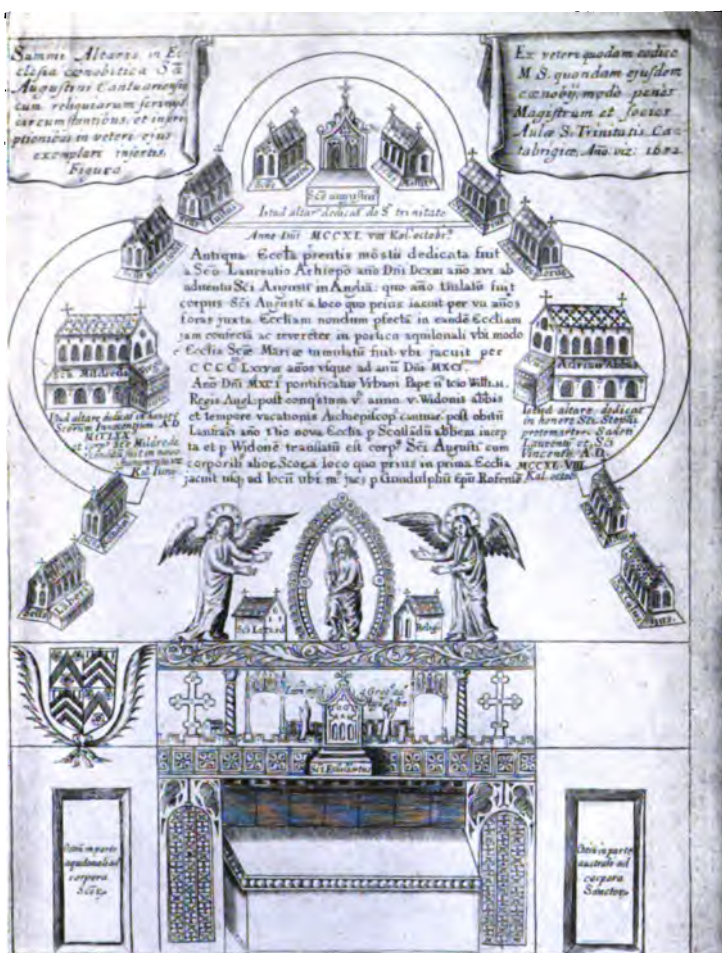 Summi Altaris in Ec-
clesia cœnobitica Sċi
Augustini Cantuariensis
cum reliquiarum scriniis
circumstantibus, et inscri-
ptionibus in veteri ejus
exemplari insertis,
Figura
Ex veteri quodam codice
M S. quondam ejusdem
cœnobij, modo penes
Magistrum et socios
Aulæ S. Trinitatis Can-
tabrigiæ, Año. viz: 1652
Sċs augustin
Istud altar dedicat do S trinitate
Anno Dñi MCCXL viii Kal. octobr.
Antiqua Eccła prentis mōstii dedicata fuit
a Sċo Laurentio Arhiepo año Dñi DCXIII año XVI ab
adventu Sċi Augusti in Angliā: quo año titulatu fuit
corpus Sċi Augusti a loco quo prius iacuit per VII años
foras juxta Eccliam nondum pfectā in eandē Eccliam
jam confectā ac reverēter in porticu aquilonali vbi modo
Ecclia Sċiæ Mariæ tumulatū fuit vbi jacuit per
CCCC LXXVIII años vsque ad anū Dñi MXCI.
Año Dñi MXCI pontificatus Urbani Papæ ñ tcio Willi. II.
Regis Angl: post conqestum v anno. v. Widonis abbis
et tempore vacationis Archiepiscop cantuar. post obitū
Lanfraci año tio nova Ecclia p Scollādū abbem incep
ta et p Widonē translatū est corp Sċi Augusti cum
corporib alior Scor a loco quo prius in prima Ecclia
jacuit usq ad locū ubi m jacs p Gundulphū epū Rofensē
Sca Mildreda
Istud altare dedicat in honore
Scorum Innocentium A D
MCCLXX
Kal. Iunii
Adrian Abbas
Istud altare dedicat
in honore Sti. Stephi
protomartiris Sctor
Laurenti et Sċi
Vincenti. A D.
MCCXL VIII
Kal. octob
Sċi Letard
Reliqi
Sċi Ethelbertus
Ostiū in parte
aquilonali ad
corpora
Scōr
Ostiū in parte
australi ad
corpora
Sanctor